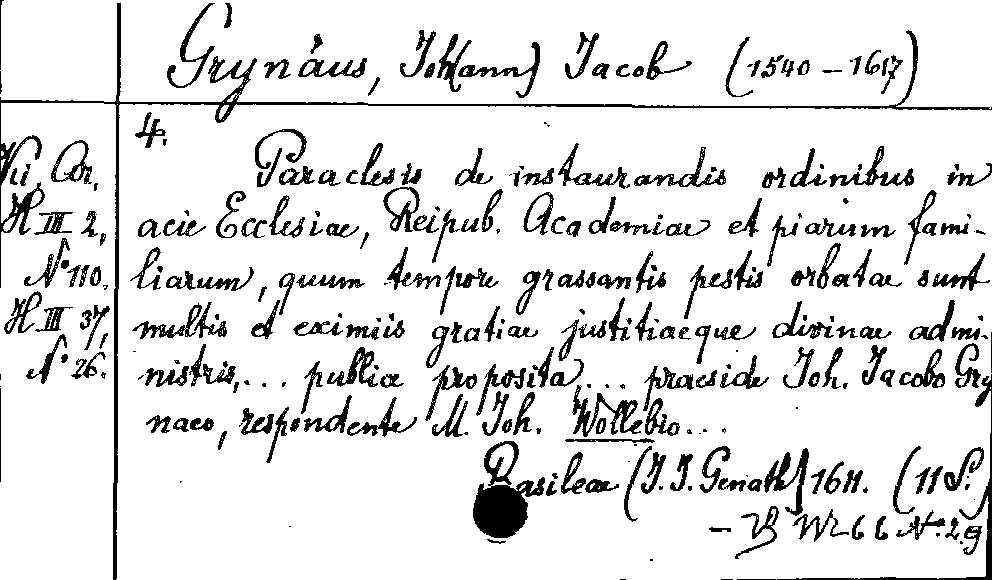 Grynäus, Joh(ann) Jacob (1540-1617)
4.
Ki. Ar.
H III 2,
N° 110.
H III 37,
N° 26.
Paraclesis de instaurandis ordinibus in
acie Ecclesiae, Reipub. Academiae et piarum fami-
liarum, quum tempore grassantis pestis orbatae sunt
multis et eximiis gratiae justitiaeque divinae admi-
nistris,... publice proposita,... praeside Joh. Jacobo Gry
naeo, respondente M. Joh. Wollebio...
Basileae (J. J. Genath) 1611. (11 S.)
N° 2.g